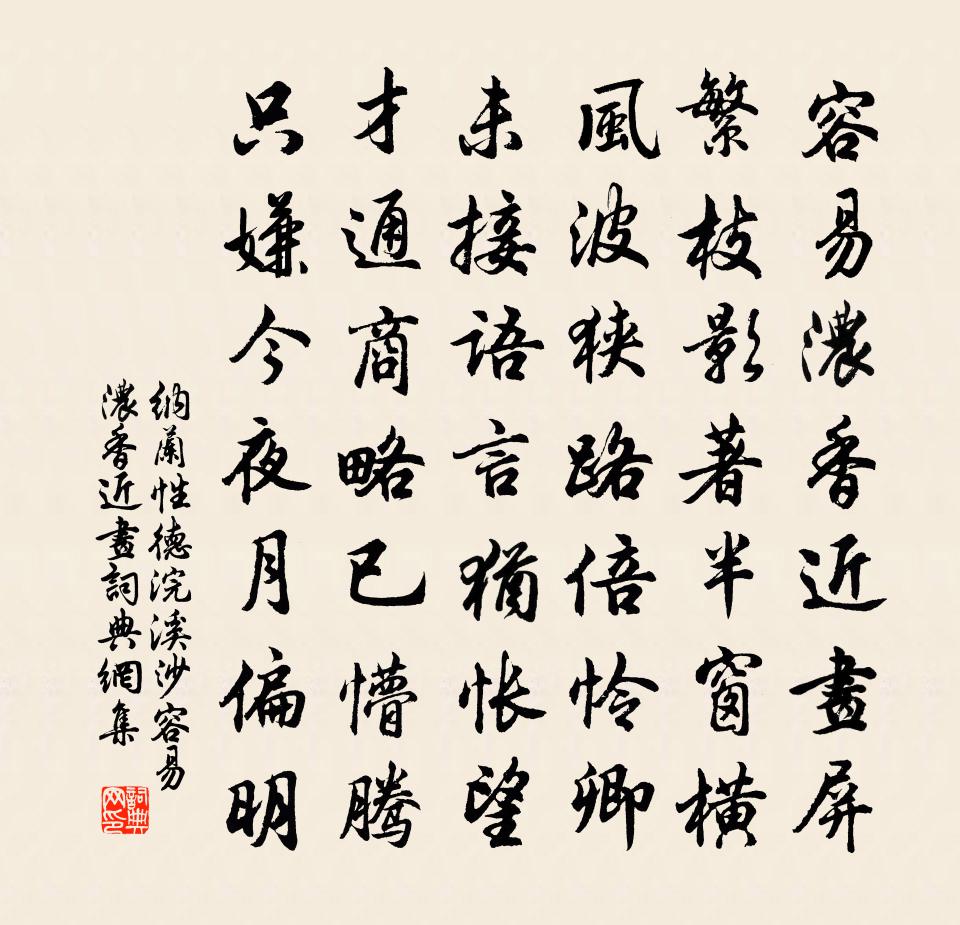 容易濃香近畫屏
繁枝影著半窗橫
風波狹路倍怜卿
未接語言猶悵望
才通商略已懵騰
只嫌今夜月偏明
納蘭性德浣溪沙容易
濃香近畫詞典網集
詞典网印